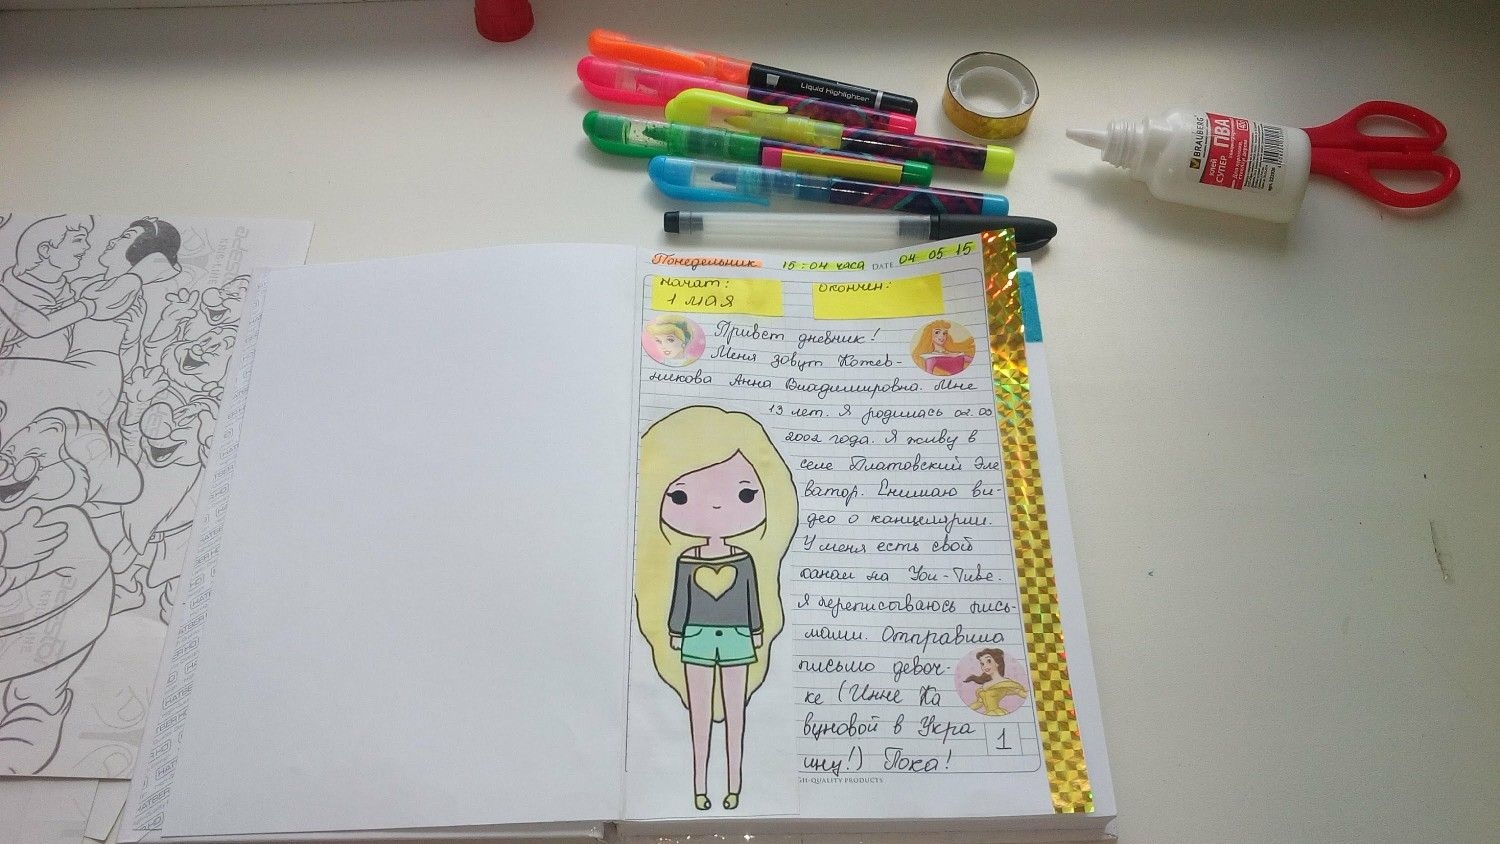 Liquid Highlighter
BRAUBERG
КЛЕЙ
СУПЕР ПВА
Понедельник 15:04 часа DATE 04 05 15
начат: окончен:
1 мая
Привет дневник!
Меня зовут Кожев-
никова Анна Владимировна. Мне
13 лет. Я родилась
2002 года. Я живу в
селе Платовский Эле
ватор. Снимаю ви-
део о канцелярии.
У меня есть свой
канал на You-Tube.
Я переписываюсь пись-
мами. Отправила
письмо девоч-
ке (Инне Ка
вуновой в Укра
ину!) Пока!
1
GH-QUALITY PRODUCTS